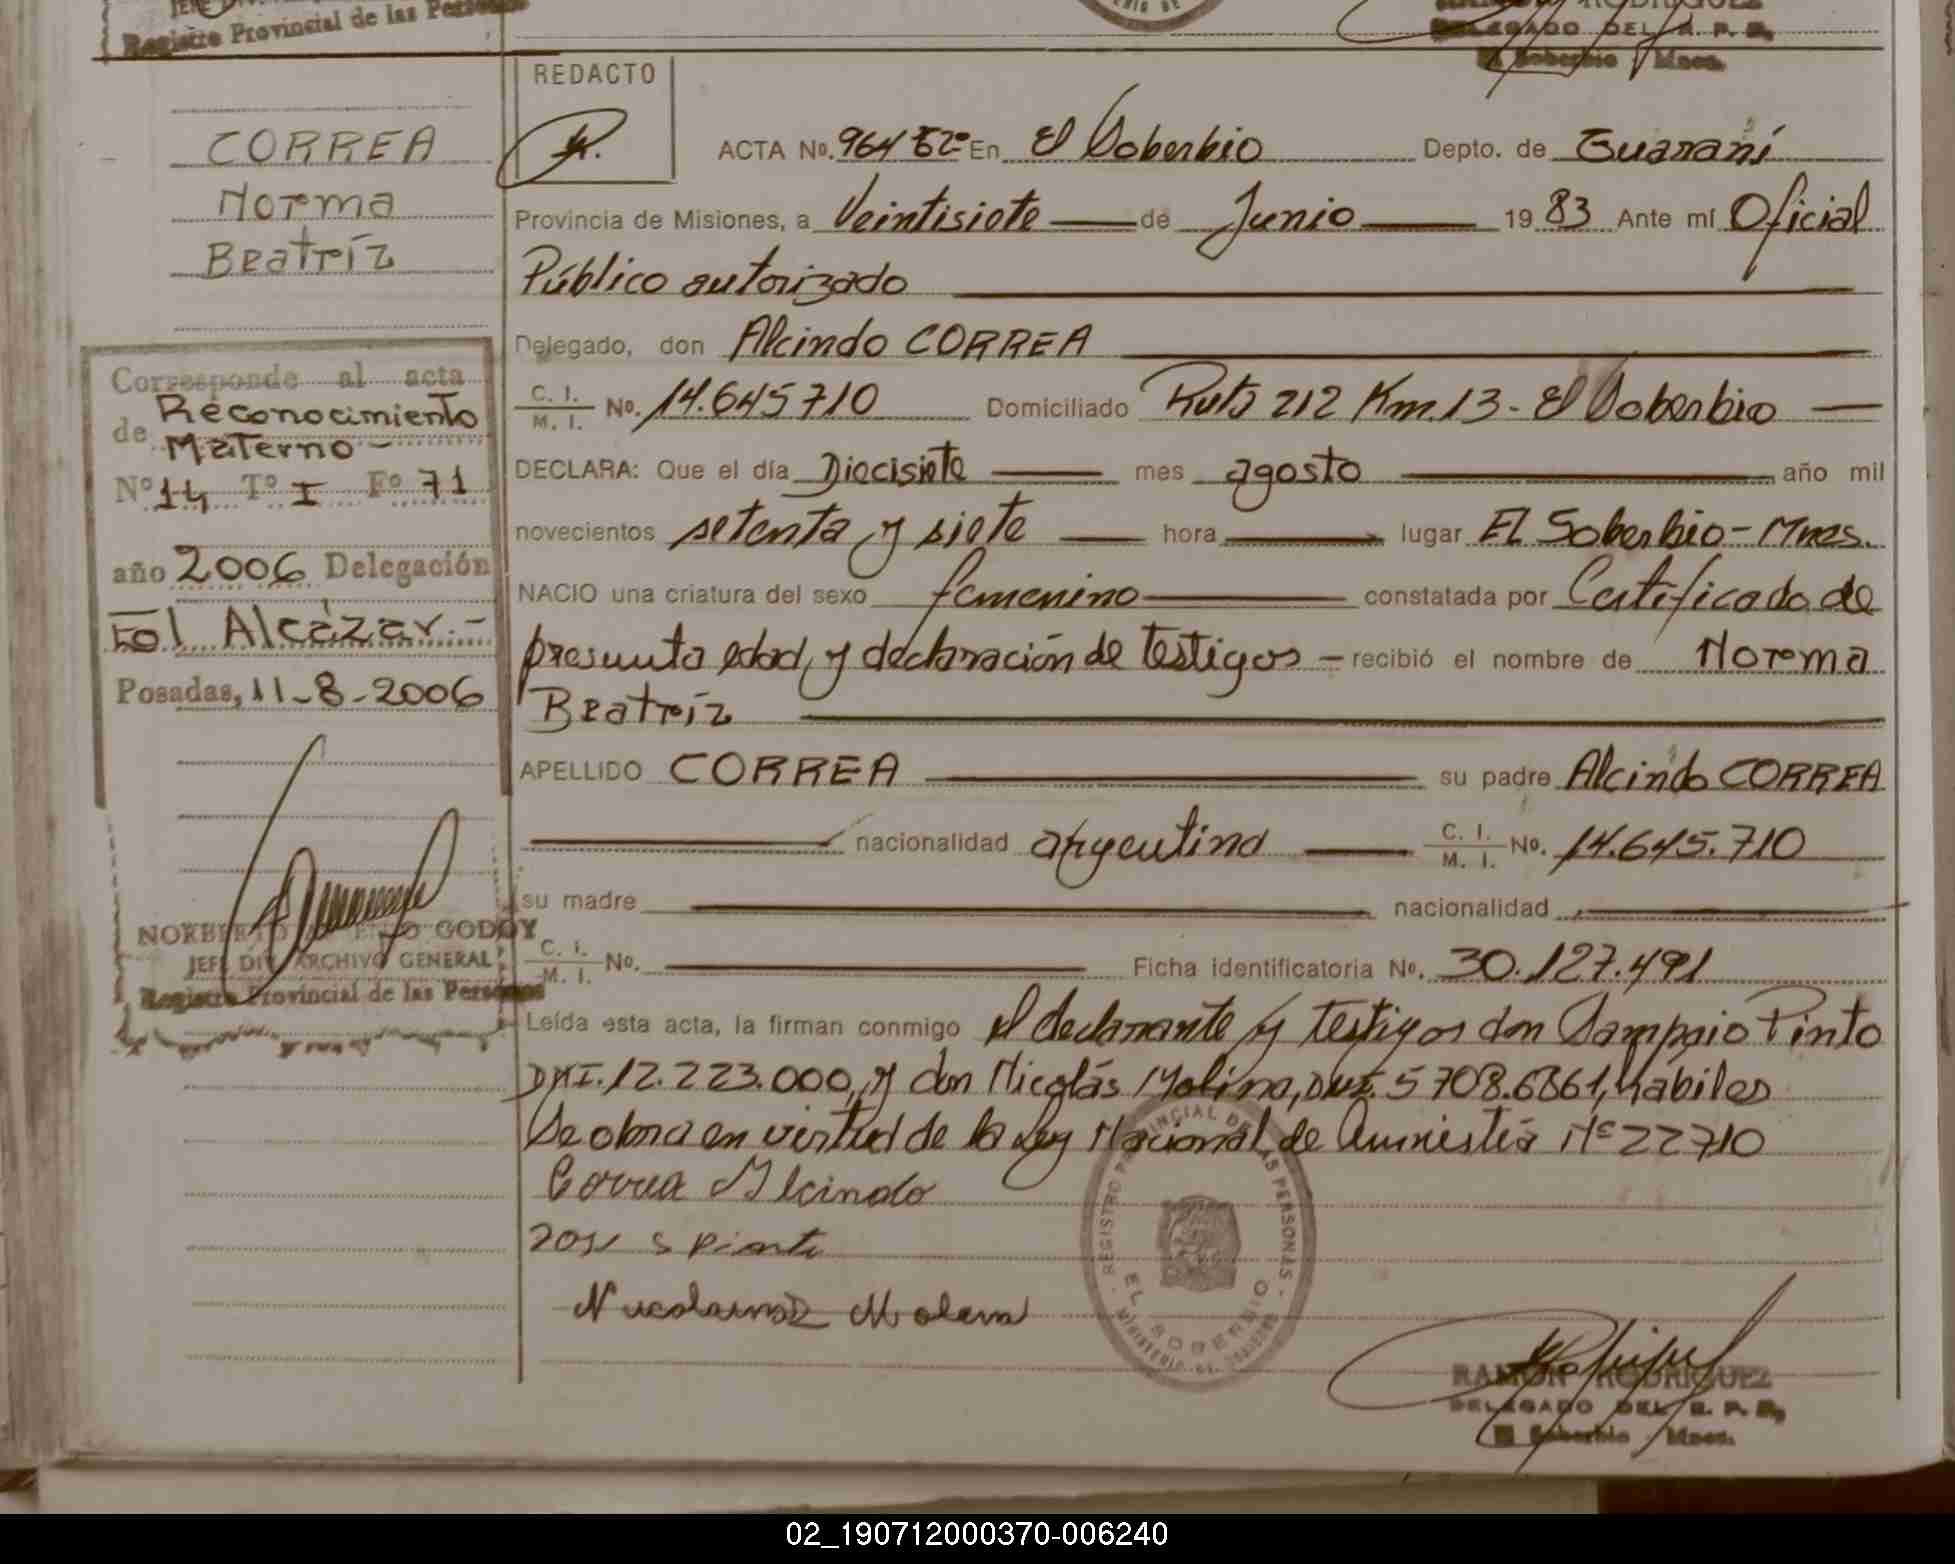 Registro Provincial de las Personas
DELEGADO DEL R. P. P.
El Soberbio Mnes.
CORREA
Norma
Beatríz
Corresponde al acta
de Reconocimiento
Materno -
Nº 14 Tº I Fº 71
año 2006 Delegación
El Alcázar.-
Posadas, 11-8-2006
NORBERTO GODOY
JEFE DIV. ARCHIVO GENERAL
Registro Provincial de las Personas
REDACTO
ACTA Nº. 964 Tº En El Soberbio Depto. de Guaraní
Provincia de Misiones, a Veintisiete de Junio 19 83 Ante mí Oficial
Público autorizado
Delegado, don Alcindo CORREA
C. I. M. I. Nº. 14.645710 Domiciliado Ruta 212 Km.13 - El Soberbio
DECLARA: Que el día Diecisiete mes agosto año mil
novecientos setenta y siete hora lugar El Soberbio - Mnes.
NACIO una criatura del sexo femenino constatada por Certificado de
presunta edad, y declaración de testigos - recibió el nombre de Norma
Beatríz
APELLIDO CORREA su padre Alcindo CORREA
nacionalidad argentina C. I. M. I. Nº. 14.645.710
su madre nacionalidad
C. I. M. I. Nº. Ficha identificatoria Nº. 30.127.491
Leída esta acta, la firman conmigo el declarante y testigos don Sampaio Pinto
DNI. 12.223.000, y don Nicolás Molina, DNI. 5708.6861, hábiles
Se obra en virtud de la Ley Nacional de Amnistía Nº 22710
Correa Alcindo
REGISTRO PROVINCIAL DE LAS PERSONAS
EL SOBERBIO
RAMON RODRIGUEZ
DELEGADO DEL R. P. P.
El Soberbio Mnes.
02_190712000370-006240